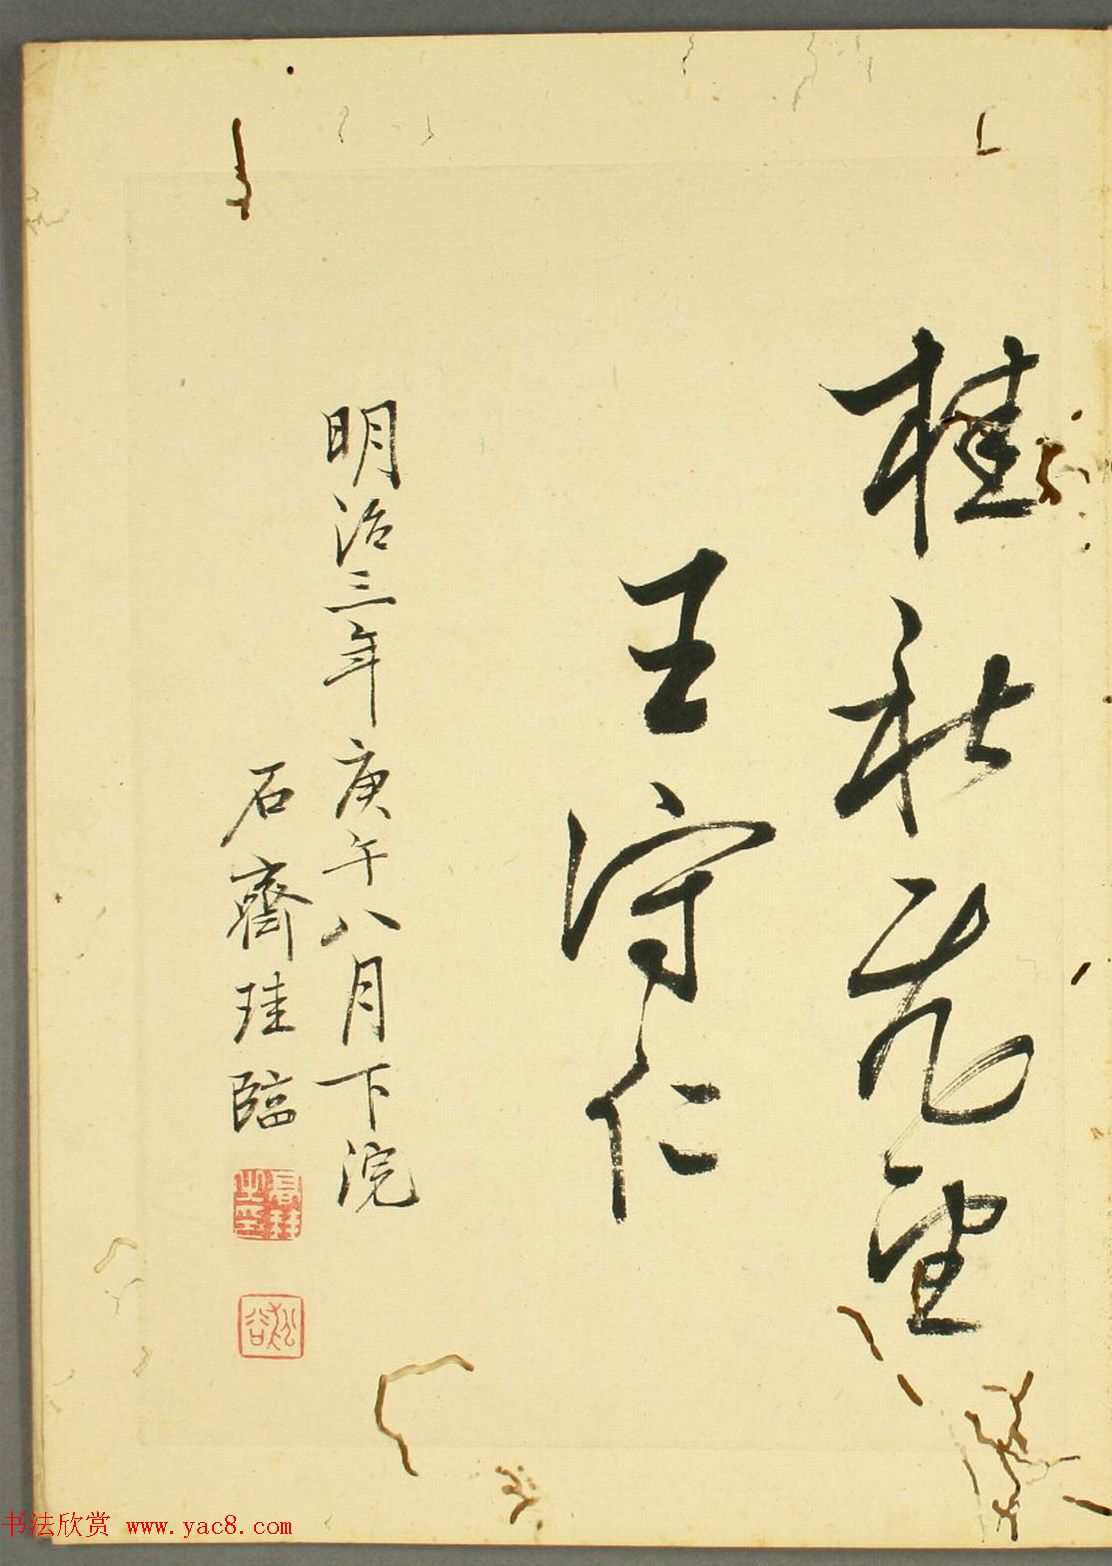 桂
王守仁
明治三年庚午八月下浣
石齋珪臨
松谷
书法欣赏 www.yac8.com